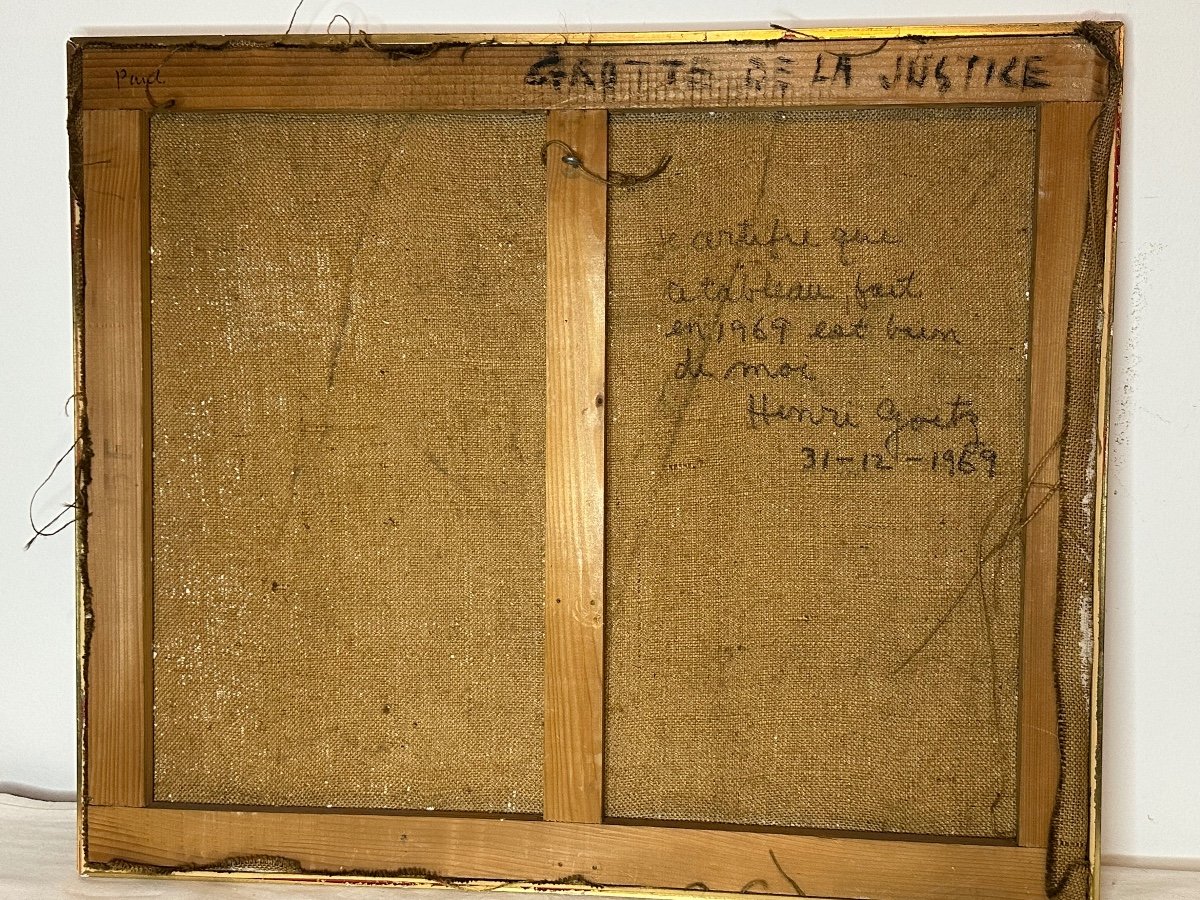 GROTTE DE LA JUSTICE
Je certifie que
ce tableau fait
en 1969 est bien
de moi
Henri Goetz
31-12-1969